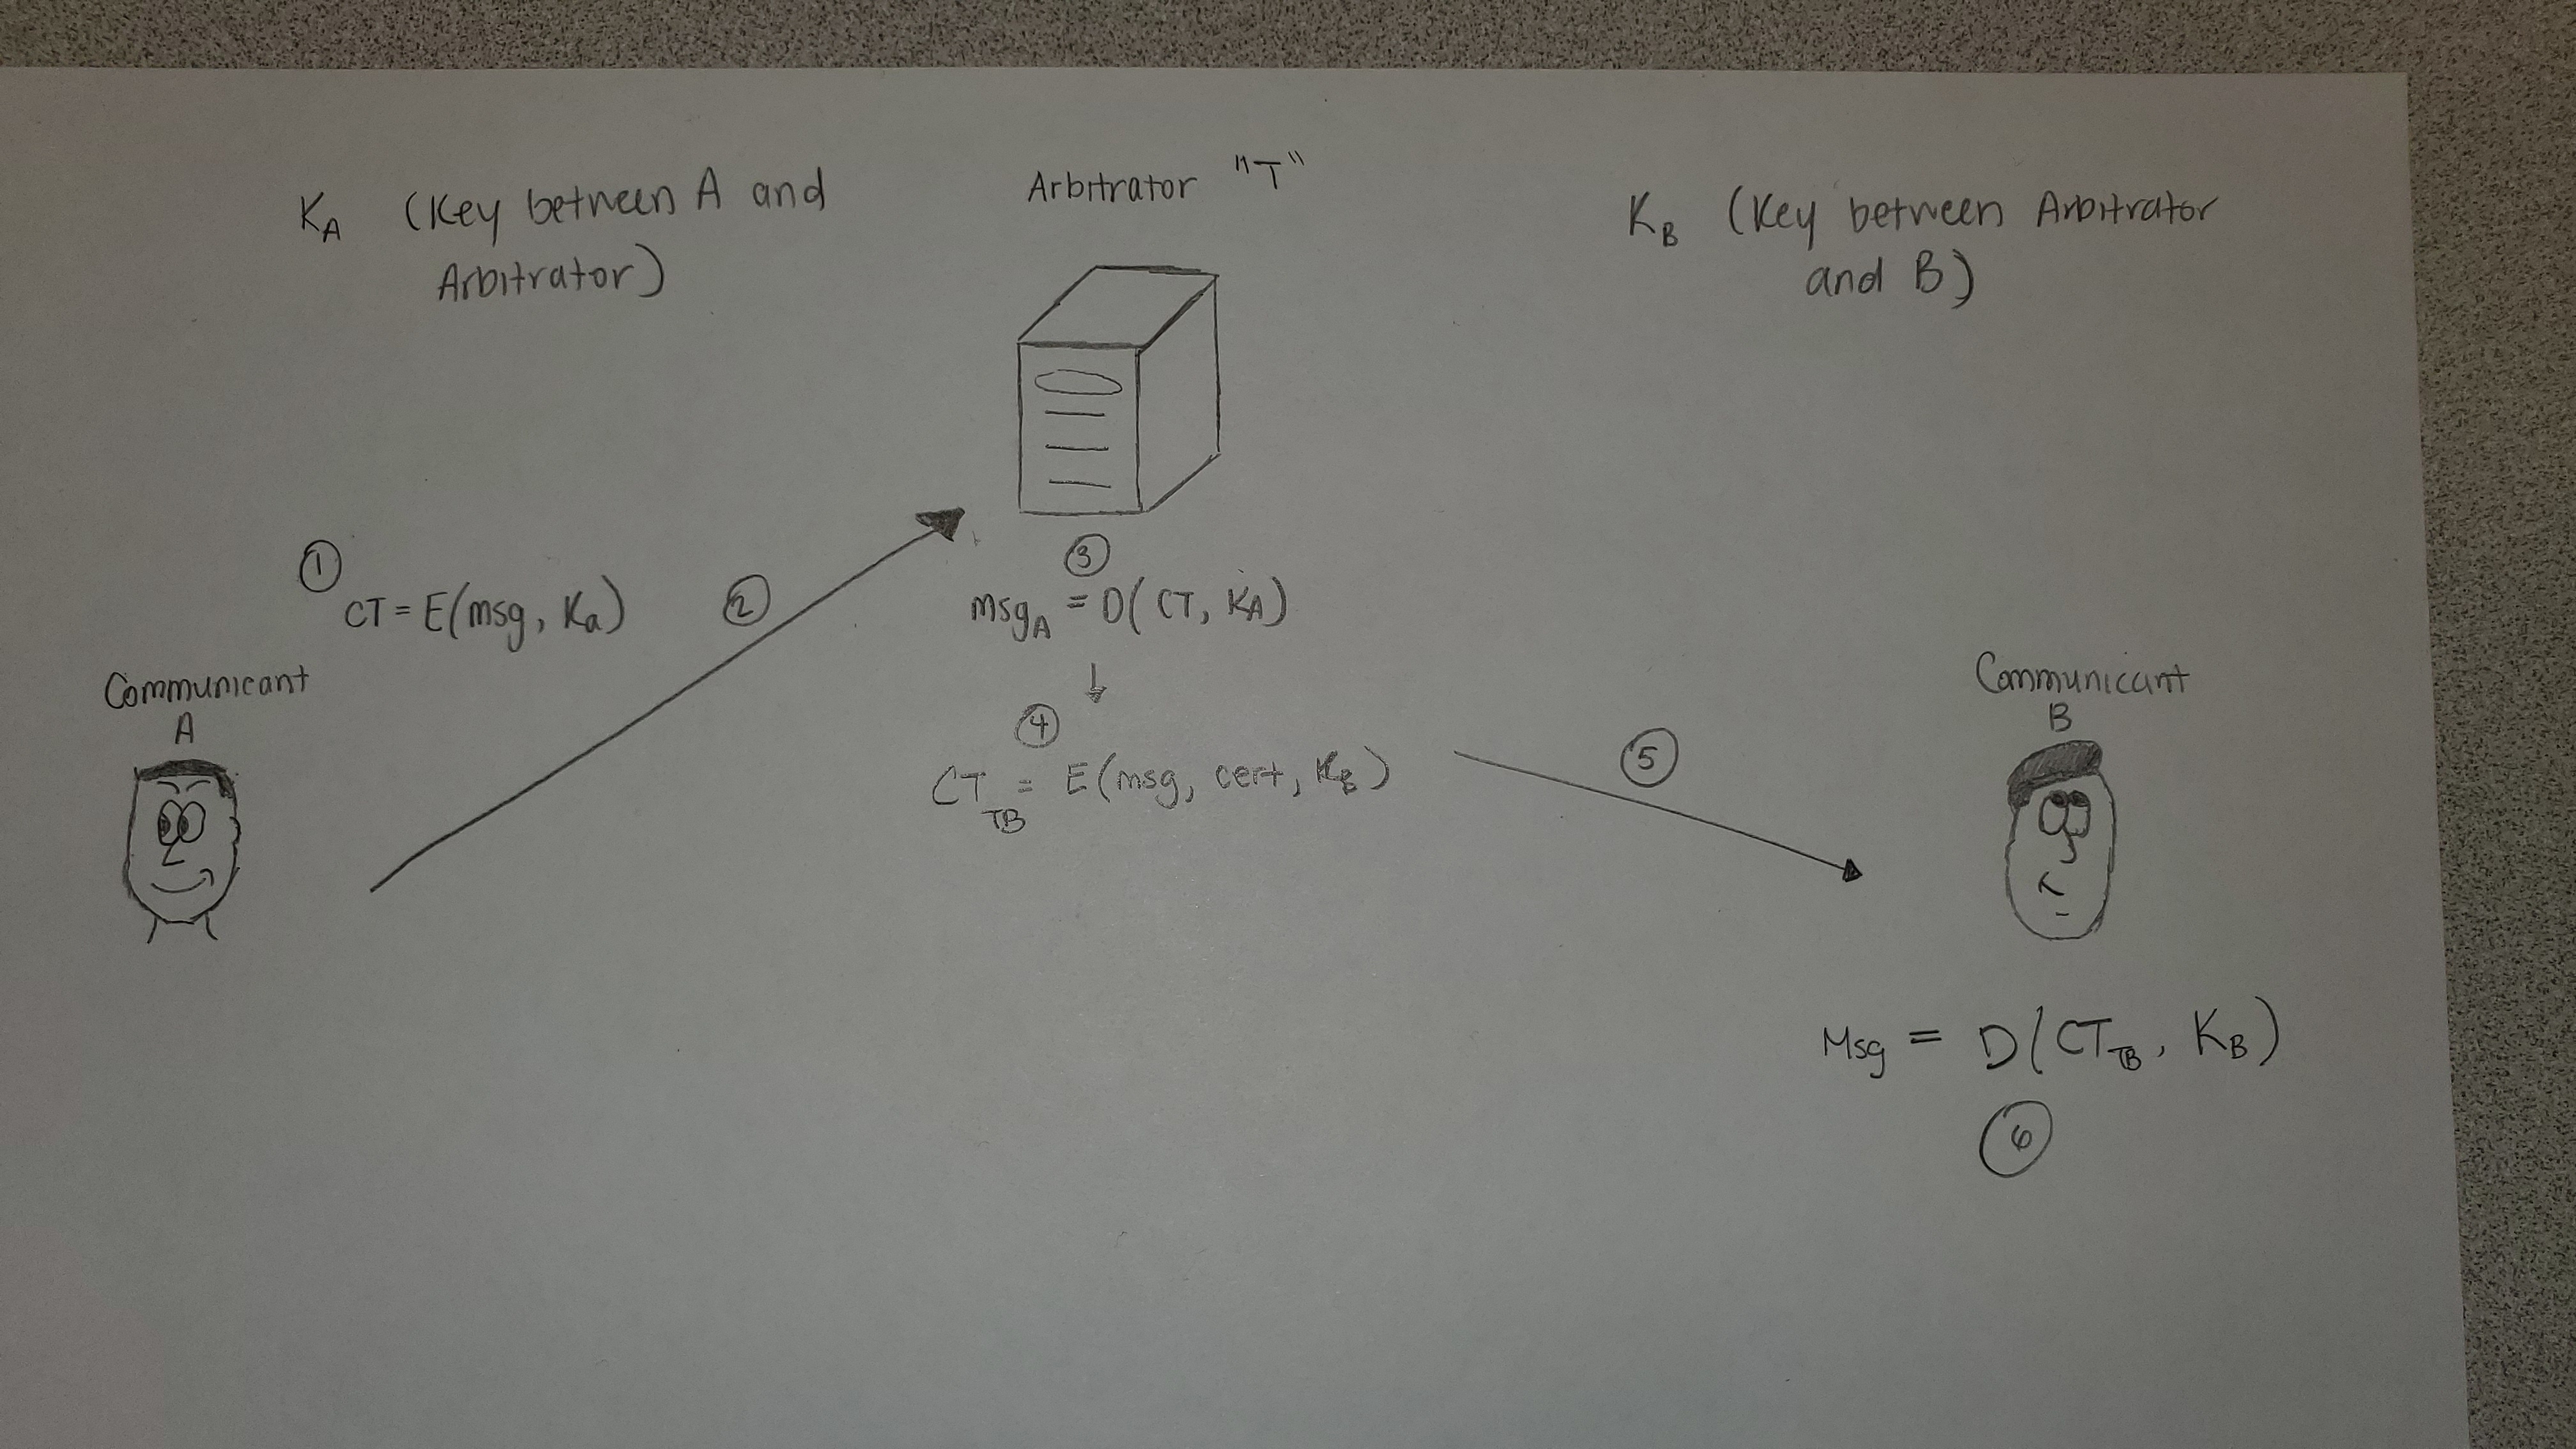 K_A (Key between A and
Arbitrator)
Arbitrator "T"
K_B (Key between Arbitrator
and B)
Communicant
A
① CT = E(msg, Ka)
②
③
Msg_A = D(CT, K_A)
↓
④
CT_TB = E(msg, cert, K_B)
⑤
Communicant
B
Msg = D(CT_TB, K_B)
⑥